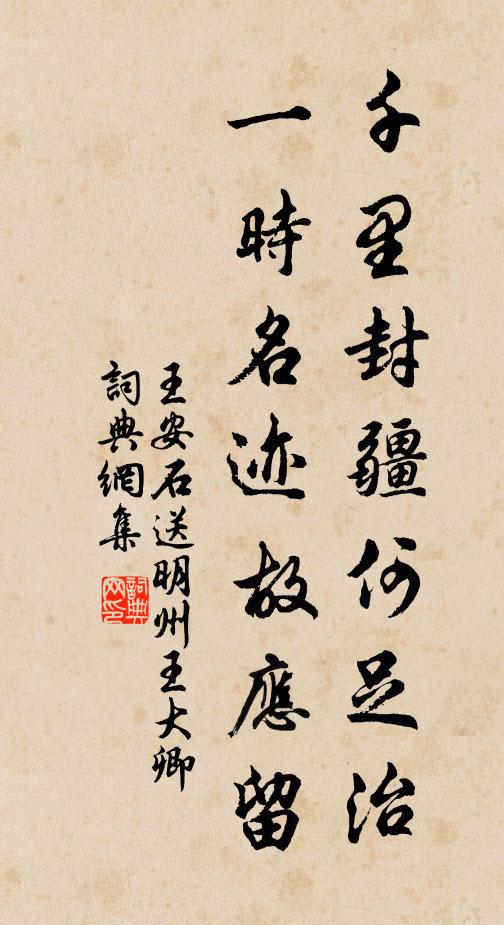 千里封疆何足治
一時名迹故應留
王安石送明州王大卿
詞典網集
詞典
网印